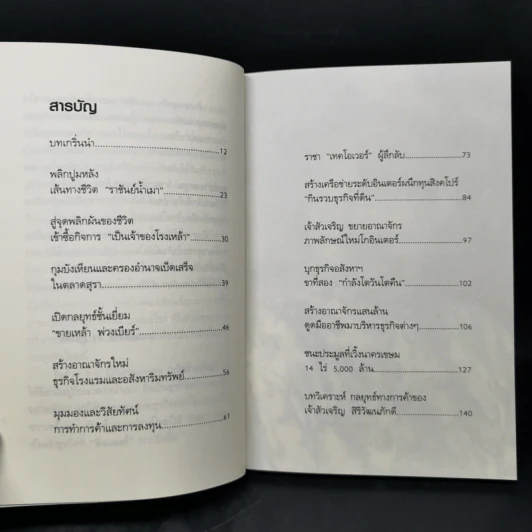 สารบัญ
บทเกริ่นนำ.......................................12
พลิกปูมหลัง
เส้นทางชีวิต "ราชันย์น้ำเมา"....................23
สู่จุดพลิกผันของชีวิต
เข้าซื้อกิจการ "เป็นเจ้าของโรงเหล้า"..........30
กุมบังเหียนและครองอำนาจเบ็ดเสร็จ
ในตลาดสุรา.......................................39
เปิดกลยุทธ์ชั้นเยี่ยม
"ขายเหล้า พ่วงเบียร์"...........................46
สร้างอาณาจักรใหม่
ธุรกิจโรงแรมและอสังหาริมทรัพย์................56
มุมมองและวิสัยทัศน์
การทำการค้าและการลงทุน.......................61
ราชา "เทคโอเวอร์" ผู้ลึกลับ....................73
สร้างเครือข่ายระดับอินเตอร์ผนึกทุนสิงคโปร์
"กินรวบธุรกิจที่ดิน"..............................84
เจ้าสัวเจริญ ขยายอาณาจักร
ภาพลักษณ์ใหม่โกอินเตอร์.........................97
บุกธุรกิจอสังหาฯ
ขาที่สอง "กำลังโตวันโตคืน"....................102
สร้างอาณาจักรแสนล้าน
ดูดมืออาชีพมาบริหารธุรกิจต่างๆ................106
ชนะประมูลที่เวิ้งนาครเขษม
14 ไร่ 5,000 ล้าน..............................127
บทวิเคราะห์ กลยุทธ์ทางการค้าของ
เจ้าสัวเจริญ สิริวัฒนภักดี.......................140